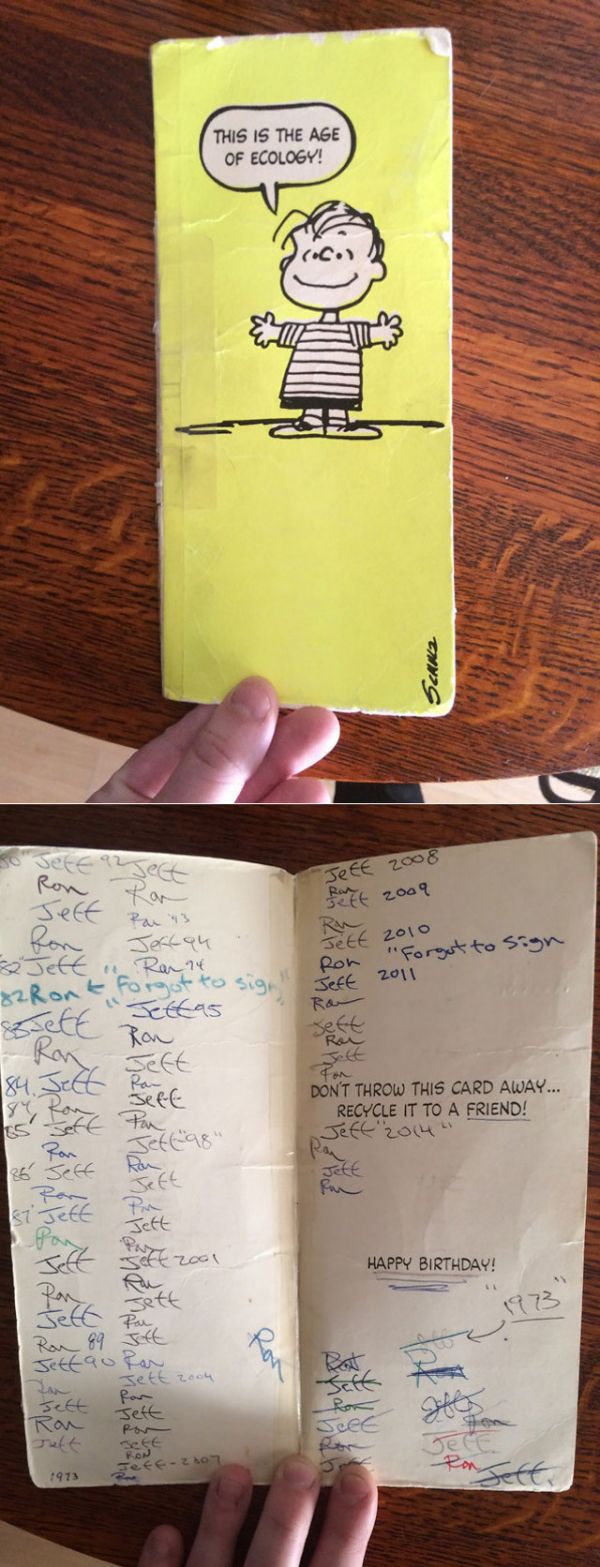 THIS IS THE AGE
OF ECOLOGY!
SCHULZ
Jeff
Ron
Jeff
Ron
82 Jeff
82 Ron ← "Forgot to sign"
83 Jeff
Ron
84. Jeff
84, Ron
85' Jeff
Ron
86' Jeff
Ron
87' Jeff
Ron
Jeff
Ron
Jeff
Ron 89
Jeff 90
Ron
Jeff
Ron
Jeff
1973
92 Jeff
Ron
Ron '93
Jeff 94
Ron 94
Jeff 95
Ron
Jeff
Ron
Jeff
Ron
Jeff "98"
Ron
Jeff
Ron
Jeff
Ron
Jeff 2001
Ron
Jeff
Ron
Jeff
Ron
Jeff 2004
Ron
Jeff
Ron
Jeff
RON
Jeff-2007
Ron
Ron
Jeff 2008
Ron
Jeff 2009
Ron
Jeff 2010
Ron "Forgot to sign
Jeff 2011
Ron
Jeff
Ron
Jeff
Ron
DON'T THROW THIS CARD AWAY...
RECYCLE IT TO A FRIEND!
Jeff "2014"
Ron
Jeff
Ron
HAPPY BIRTHDAY!
"1973"
Jeff
Ron
Ron
Jeff
Ron
Jeff
Ron
Jeff
Ron
Jeff
Ron
Jeff
Jeff.